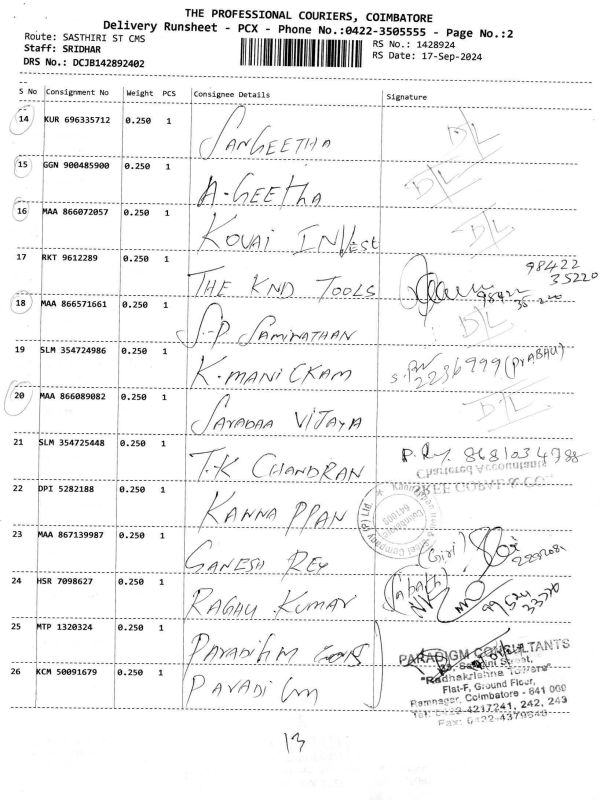 THE PROFESSIONAL COURIERS, COIMBATORE
Delivery Runsheet - PCX - Phone No.:0422-3505555 - Page No.:2
Route: SASTHIRI ST CMS
RS No.: 1428924
Staff: SRIDHAR
RS Date: 17-Sep-2024
DRS No.: DCJB142892402
S No Consignment No Weight PCS Consignee Details Signature
14 KUR 696335712 0.250 1 SANGEETHA D/L
15 GGN 900485900 0.250 1 A-GEETHA D/L
16 MAA 866072057 0.250 1 KOVAI INVEST D/L
17 RKT 9612289 0.250 1 THE KND TOOLS 98422 35220
18 MAA 866571661 0.250 1 S.P SAMINATHAN D/L
19 SLM 354724986 0.250 1 K.MANICKAM 2236999 (PRABAU)
20 MAA 866089082 0.250 1 SARADAA VIJAYA D/L
21 SLM 354725448 0.250 1 T.K CHANDRAN 8681034788
Chartered Accountants
22 DPI 5282188 0.250 1 KANNAPPAN
23 MAA 867139987 0.250 1 GANESH REY (Giri)
24 HSR 7098627 0.250 1 RAGAU KUMAR
25 MTP 1320324 0.250 1 Paradihm
26 KCM 50091679 0.250 1 Paradi
PARADIGM CONSULTANTS
"Radhakrishna Towers"
Flat-F, Ground Floor,
Ramnagar, Coimbatore - 641 009
Tel: 0422-4217241, 242, 243
Fax: 0422-4379848
13